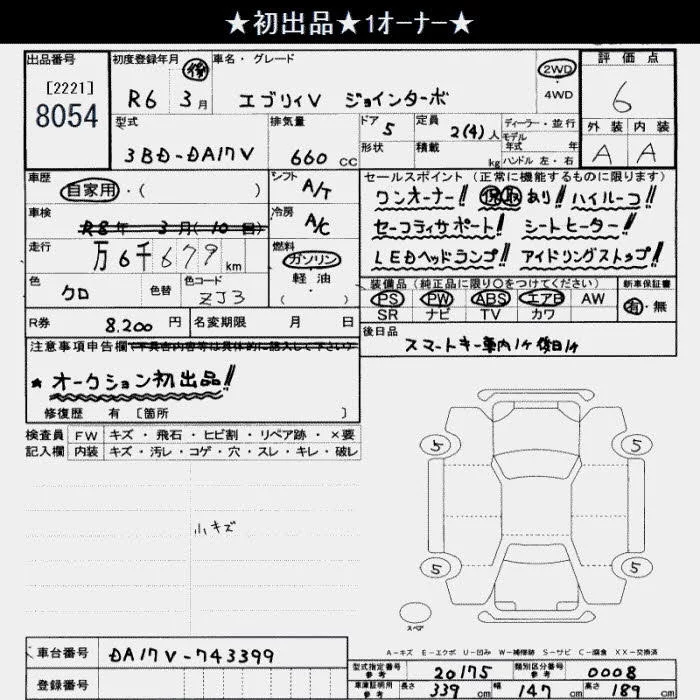 ★初出品★1オーナー★
出品番号 初度登録年月 車名・グレード 評価点
[2221]
8054
R6 3月 (後) エブリイV ジョインターボ 2WD・4WD 6
型式 排気量 ドア 定員 ディーラー・並行
モデル年式 年
外装 内装
3BD-DA17V 660 CC 5 2(4)人
形状 積載 kg ハンドル 左・右
A A
車歴 自家用・( )
シフト A/T
車検 R8年 3月(10回)
冷房 A/C
走行 万6千679km
燃料 ガソリン・軽油( )
色 クロ 色替 色コード ZJ3
R券 8.200円 名変期限 月 日
セールスポイント(正常に機能するものに限ります)
ワンオーナー!! 保取あり!! ハイルーフ!!
セーフティサポート!! シートヒーター!!
LEDヘッドランプ!! アイドリングストップ!!
装備品(純正品に限り○をつけてください) 新車保証書
PS PW ABS エアB AW 有・無
SR ナビ TV カワ
後日品
スマートキー車内1ヶ後日1ヶ
注意事項申告欄(不具合内容等は具体的に記入して下さい)
★オークション初出品!!
修復歴 有 [箇所 ]
検査員 FW キズ・飛石・ヒビ割・リペア跡・×要
記入欄 内装 キズ・汚レ・コゲ・穴・スレ・キレ・破レ
小キズ
5 5
5 5
スペア
A-キズ E-エクボ U-凹み W-補修跡 S-サビ C-腐食 XX-交換済
車台番号 DA17V-743399
登録番号
型式指定番号 参考 20175 類別区分番号 参考 0008
車庫証明用 参考 長さ 339cm 幅 147cm 高さ 189cm